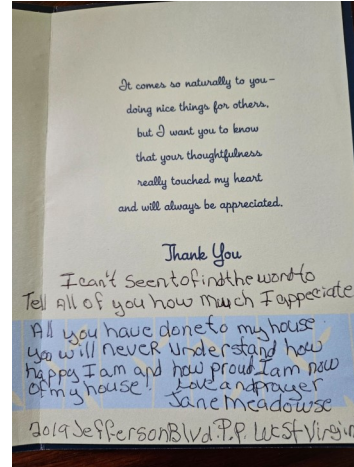 It comes so naturally to you–
doing nice things for others,
but I want you to know
that your thoughtfulness
really touched my heart
and will always be appreciated.
Thank You
I can't seen to find the word to
Tell All of you how much I appeciate
All you have done to my house.
you will never understand how
happy I am and how proud I am now
of my house! Love and prayer
Jane Meadowse
2019 Jefferson Blvd. P.P. West Virgin